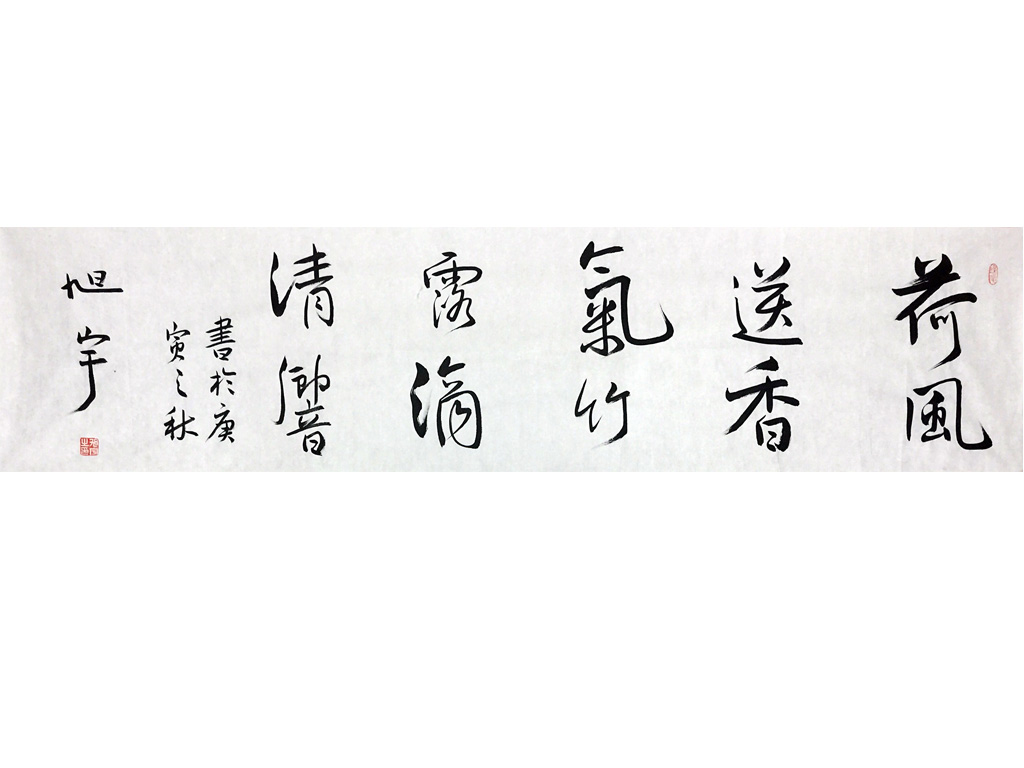 荷風
送香
氣竹
露滴
清響
書於庚
寅之秋
旭宇